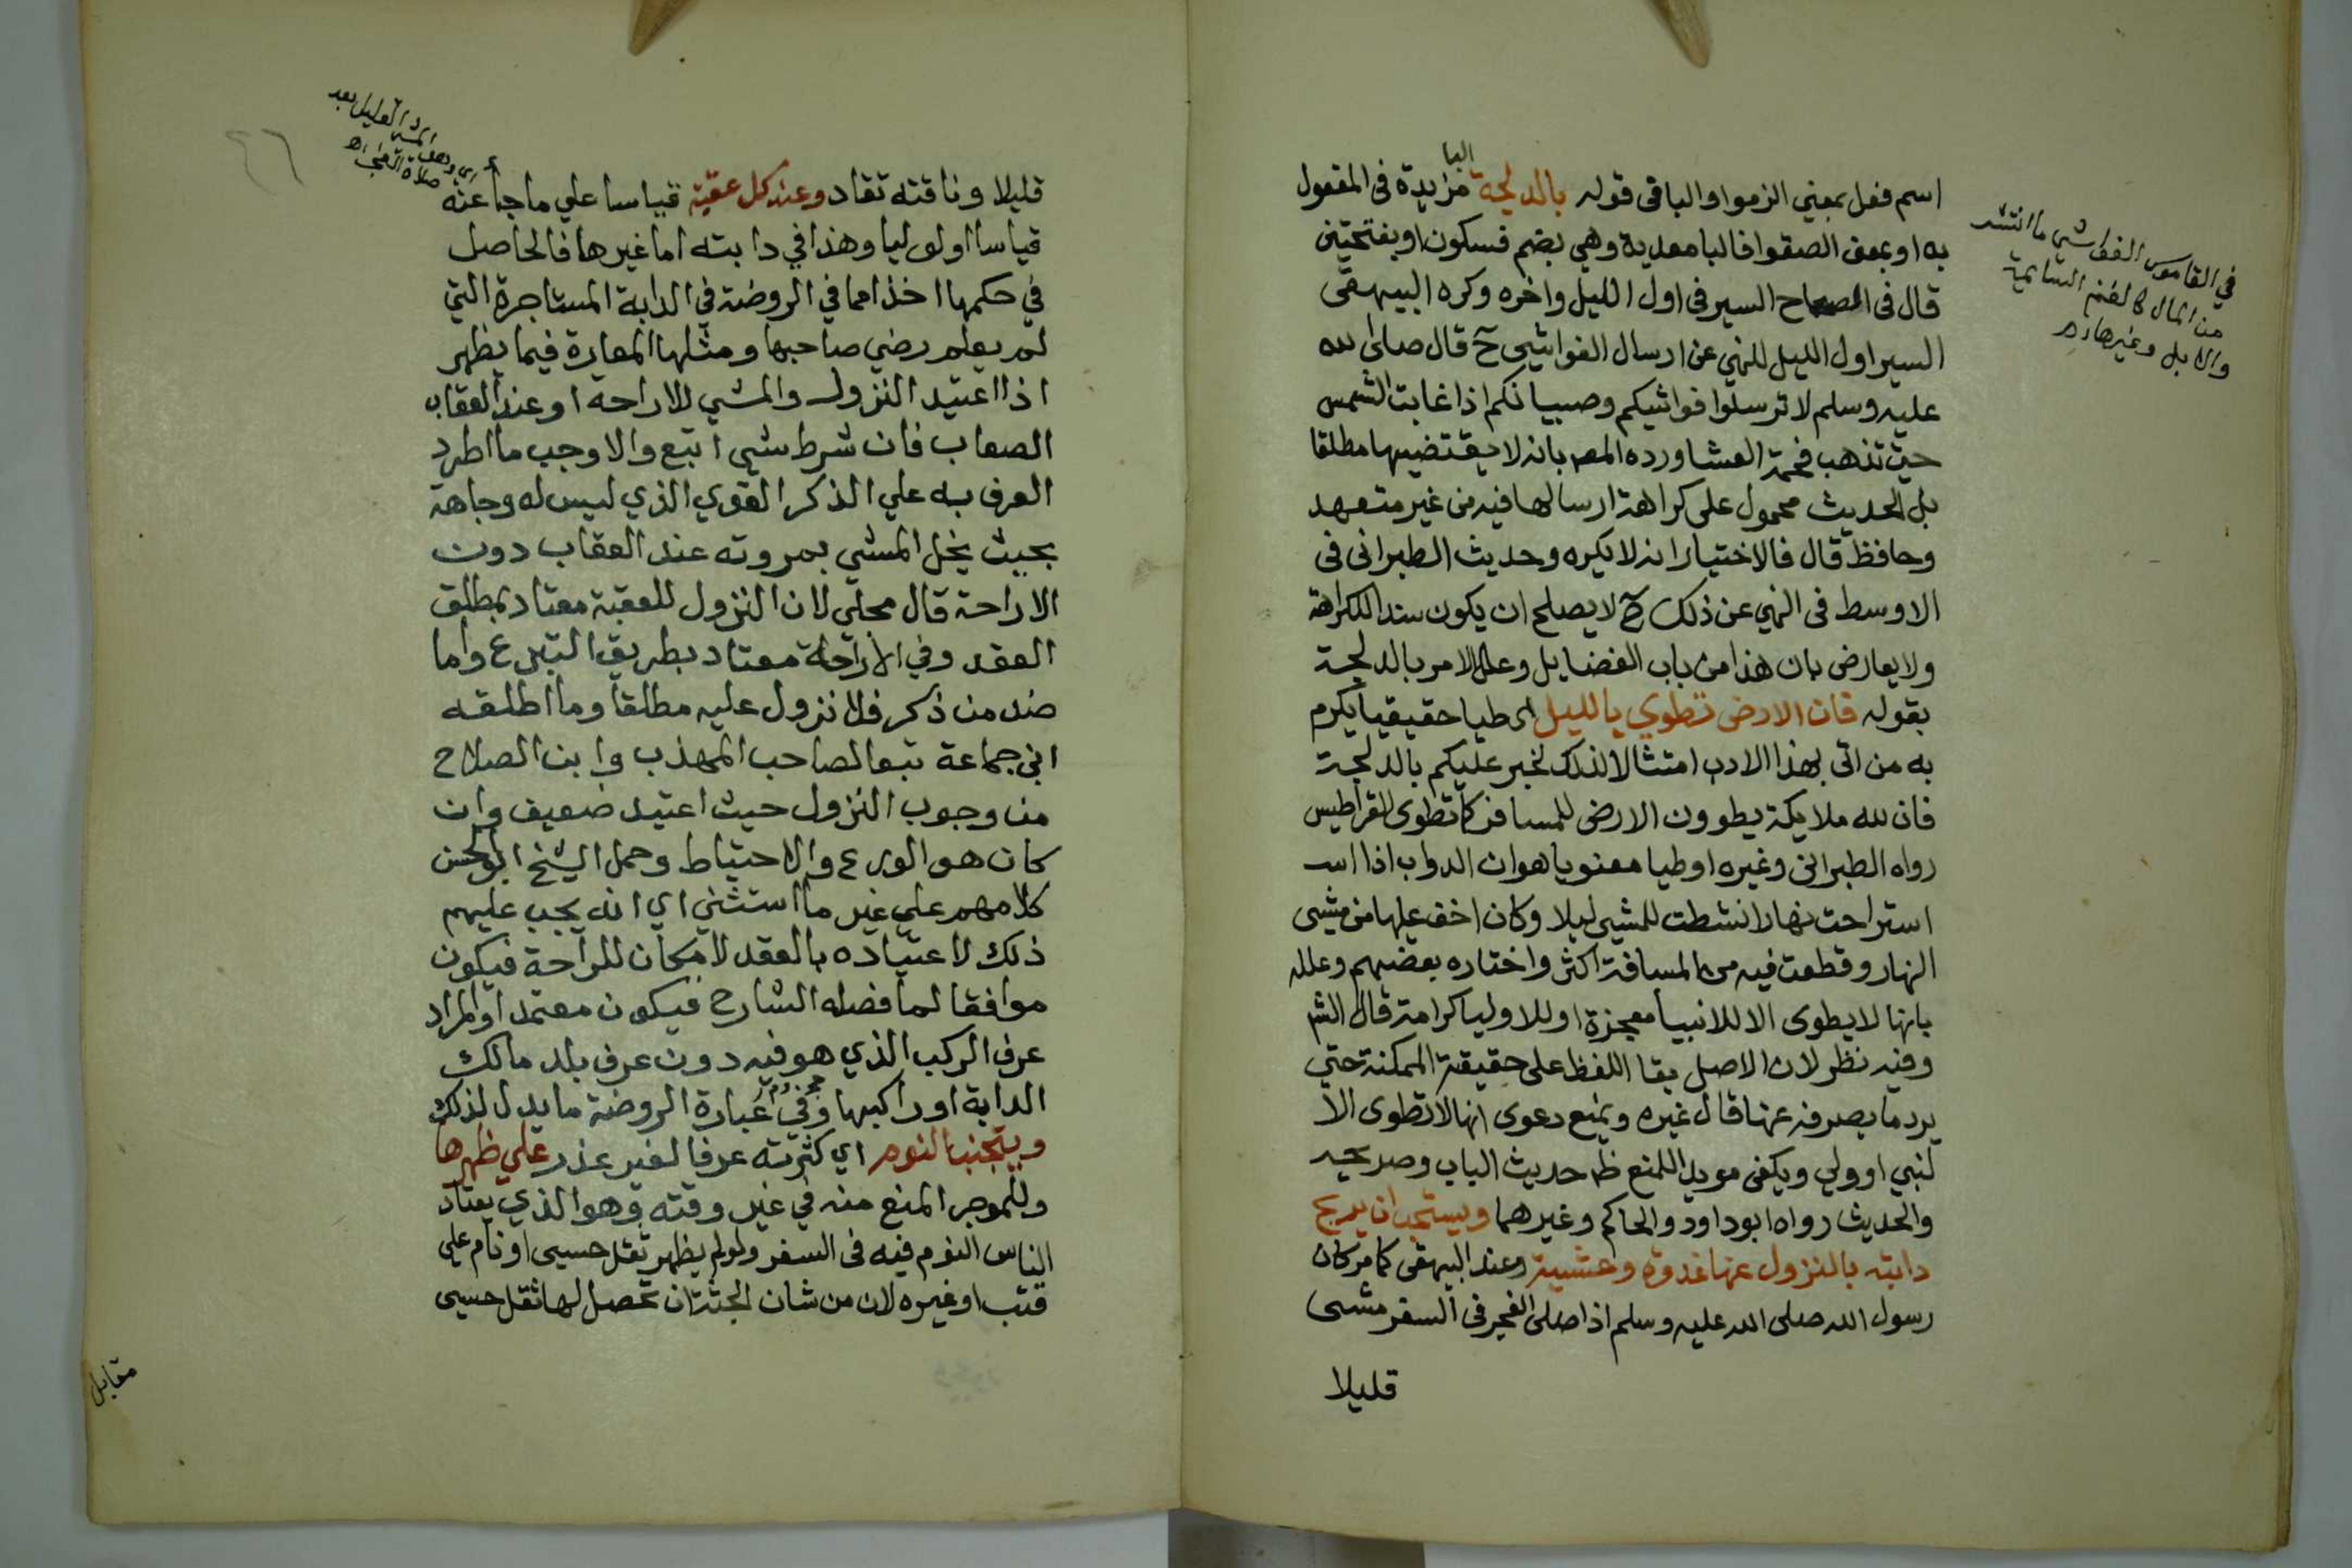 اسم فعل بمعني الزموا والباقى قوله بالدلجة مزايدة فى المفعول
البا
به او بمعنى الصقوا فالبا معدية وهي بضم فسكون او بفتحتين
قال فى المصباح السير فى اول الليل واخره وكره البيهقى
السير اول الليل للنهي عن ارسال الفواشي ح قال صلى الله
عليه وسلم لا ترسلوا فواشيكم وصبيانكم اذا غابت الشمس
حتى تذهب فحمة العشا ورده المص بانه لا يقتضيها مطلقا
بل الحديث محمول على كراهة ارسالها فيه من غير متعهد
وحافظ قال فالاختيار انه لا يكره وحديث الطبرانى فى
الاوسط فى النهي عن ذلك لا يصلح ان يكون سندا للكراهة
ولا يعارض بان هذا من باب الفضايل وعلل الامر بالدلجة
بقوله فان الارض تطوي بالليل اى طيا حقيقيا يكرم
به من اتى بهذا الادب امتثالا لذلك لخبر عليكم بالدلجة
فان لله ملايكة يطوون الارض للمسافر كما تطوى القراطيس
رواه الطبرانى وغيره او طيا معنويا هو ان الدواب اذا است
استراحت نهارا نشطت للمشي ليلا وكان اخف عليها من مشى
النهار وقطعت فيه من المسافة اكثر واختاره بعضهم وعلله
بانها لا يطوى الا للانبيا معجزة او للاوليا كرامة قال الش
وفيه نظر لان الاصل بقا اللفظ على حقيقته الممكنة حتي
يرد ما يصرفه عنها قال غيره ويمنع دعوى انها لا تطوى الا
لنبي او ولي ويكفى مويدا للمنع ظ حديث الباب وصريحه
والحديث رواه ابو داود والحاكم وغيرهما ويستحب ان يريح
دابته بالنزول عنها غدوة وعشية وعند البيهقى كما مر كان
رسول الله صلى الله عليه وسلم اذا صلى الفجر فى السفر مشى
قليلا
في القاموس الفواشي ما انتشر
من المال كالغنم السايمة
والابل وغيرها اه
قليلا وناقته تقاد وعند كل عقبة قياسا علي ما جا عنه
قياسا اولويا وهذا في دابته اما غيرها فالحاصل
في حكمها اخذا مما في الروضة في الدابة المستاجرة التي
لم يعلم رضي صاحبها ومثلها المعارة فيما يظهر
اذا اعتيد النزول والمشي للاراحة او عند العقاب
الصعاب فان شرط شي اتبع والا وجب ما اطرد
العرف به علي الذكر القوي الذي ليس له وجاهة
بحيث يخل المشي بمروته عند العقاب دون
الاراحة قال محلي لان النزول للعقبة معتاد بمطلق
العقد وفي الاراحة معتاد بطريق التبرع واما
ضد من ذكر فلا نزول عليه مطلقا وما اطلقه
ابن جماعة تبعا لصاحب المهذب وابن الصلاح
من وجوب النزول حيث اعتيد ضعيف وان
كان هو الورع والاحتياط وحمل الشيخ ابو الحسن
كلامهم علي غير ما استثني اي انه يجب عليهم
ذلك لاعتياده بالعقد لا مكان للراحة فيكون
موافقا لما فصله الشارح فيكون معتمدا والمراد
عرف الركب الذي هو فيه دون عرف بلد مالك
الدابة او راكبها وفي عبارة الروضة ما يدل لذلك
ويتجنب النوم اي كثرته عرفا لغير عذر علي ظهرها
وللموجر المنع منه في غير وقته وهو الذي يعتاد
الناس النوم فيه فى السفر ولو لم يظهر ثقل حسي او نام علي
قتب او غيره لان من شان الجثة ان تحصل لها ثقل حسي
مقابل
اي وهو المشي القليل بعد
صلاة الفجر اه
٤٦